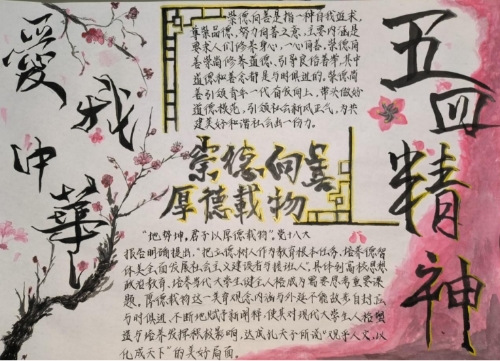 愛我中華
五四精神
崇德向善是指一种自我追求，
尊崇品德，努力向善之意，主要内涵是
要求人们修养身心，一心向善。崇德向
善崇尚修养道德，引导良俗善举，其中
道德和善念都是与时俱进的，崇德向
善引领青年一代奋发向上，带头做好
道德模范，引领社会新风正气，为共
建美好和谐社会出一份力。
崇德向善
厚德載物
"地势坤，君子以厚德载物"，党十八大
报告明确提出，"把立德树人作为教育根本任务，培养德智
体美全面发展社会主义建设者与接班人"。具体到高校思想
政治教育，培养当代大学生健全人格成为需要思考重要课
题，厚德载物这一美育观念内涵与外延不能故步自封应
与时俱进，不断地赋予新阐释，使其对现代大学生人格塑
造与培养发挥积极影响，达成孔夫子所说"观乎人文，以
化成天下"的美好局面。